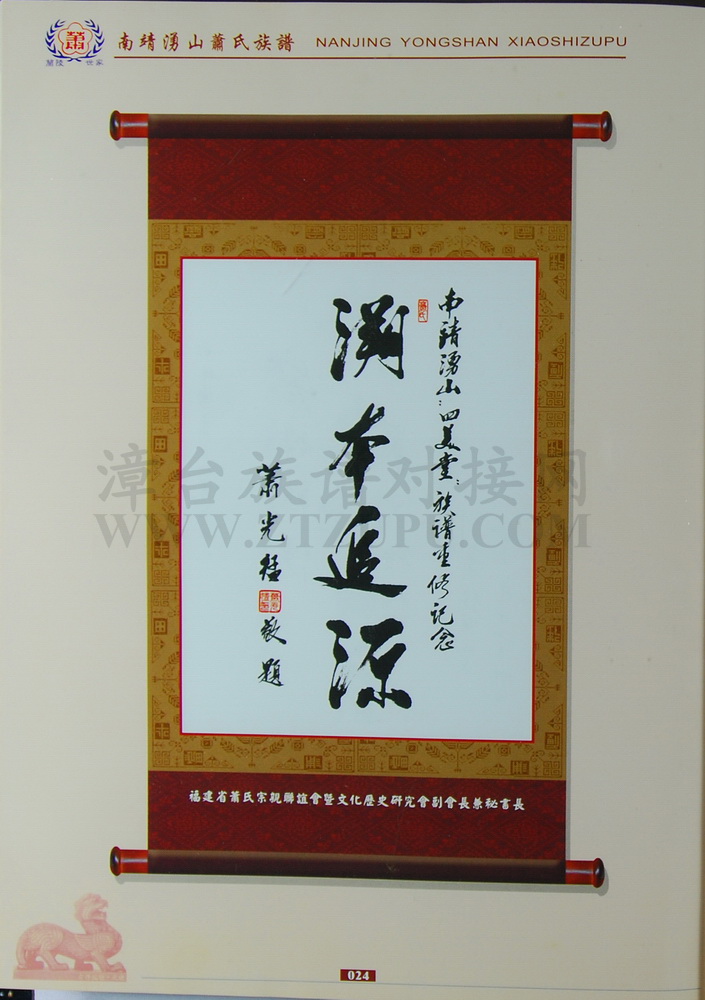 南靖湧山蕭氏族譜 NANJING YONGSHAN XIAOSHIZUPU
蕭
蘭陵 世家
南靖湧山:四美堂:族譜重修記念
蕭氏
溯本追源
蕭光猛
敬題
漳台族谱对接网
WWW.ZTZUPU.COM
福建省蕭氏宗親聯誼會暨文化歷史研究會副會長兼祕書長
024